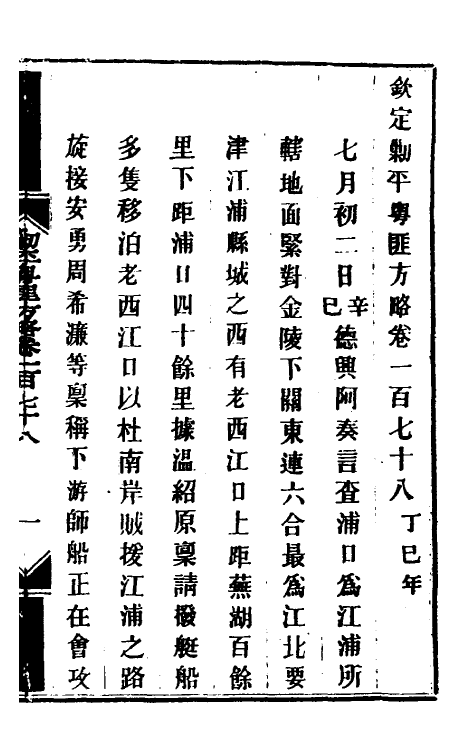 欽定勦平粵匪方略卷一百七十八 丁巳年
七月初二日辛巳德興阿奏言查浦口爲江浦所
轄地面緊對金陵下關東連六合最爲江北要
津江浦縣城之西有老西江口上距蕪湖百餘
里下距浦口四十餘里據溫紹原稟請撥艇船
多隻移泊老西江口以杜南岸賊援江浦之路
旋接安勇周希濂等稟稱下游師船正在會攻
卷一百七十八
一